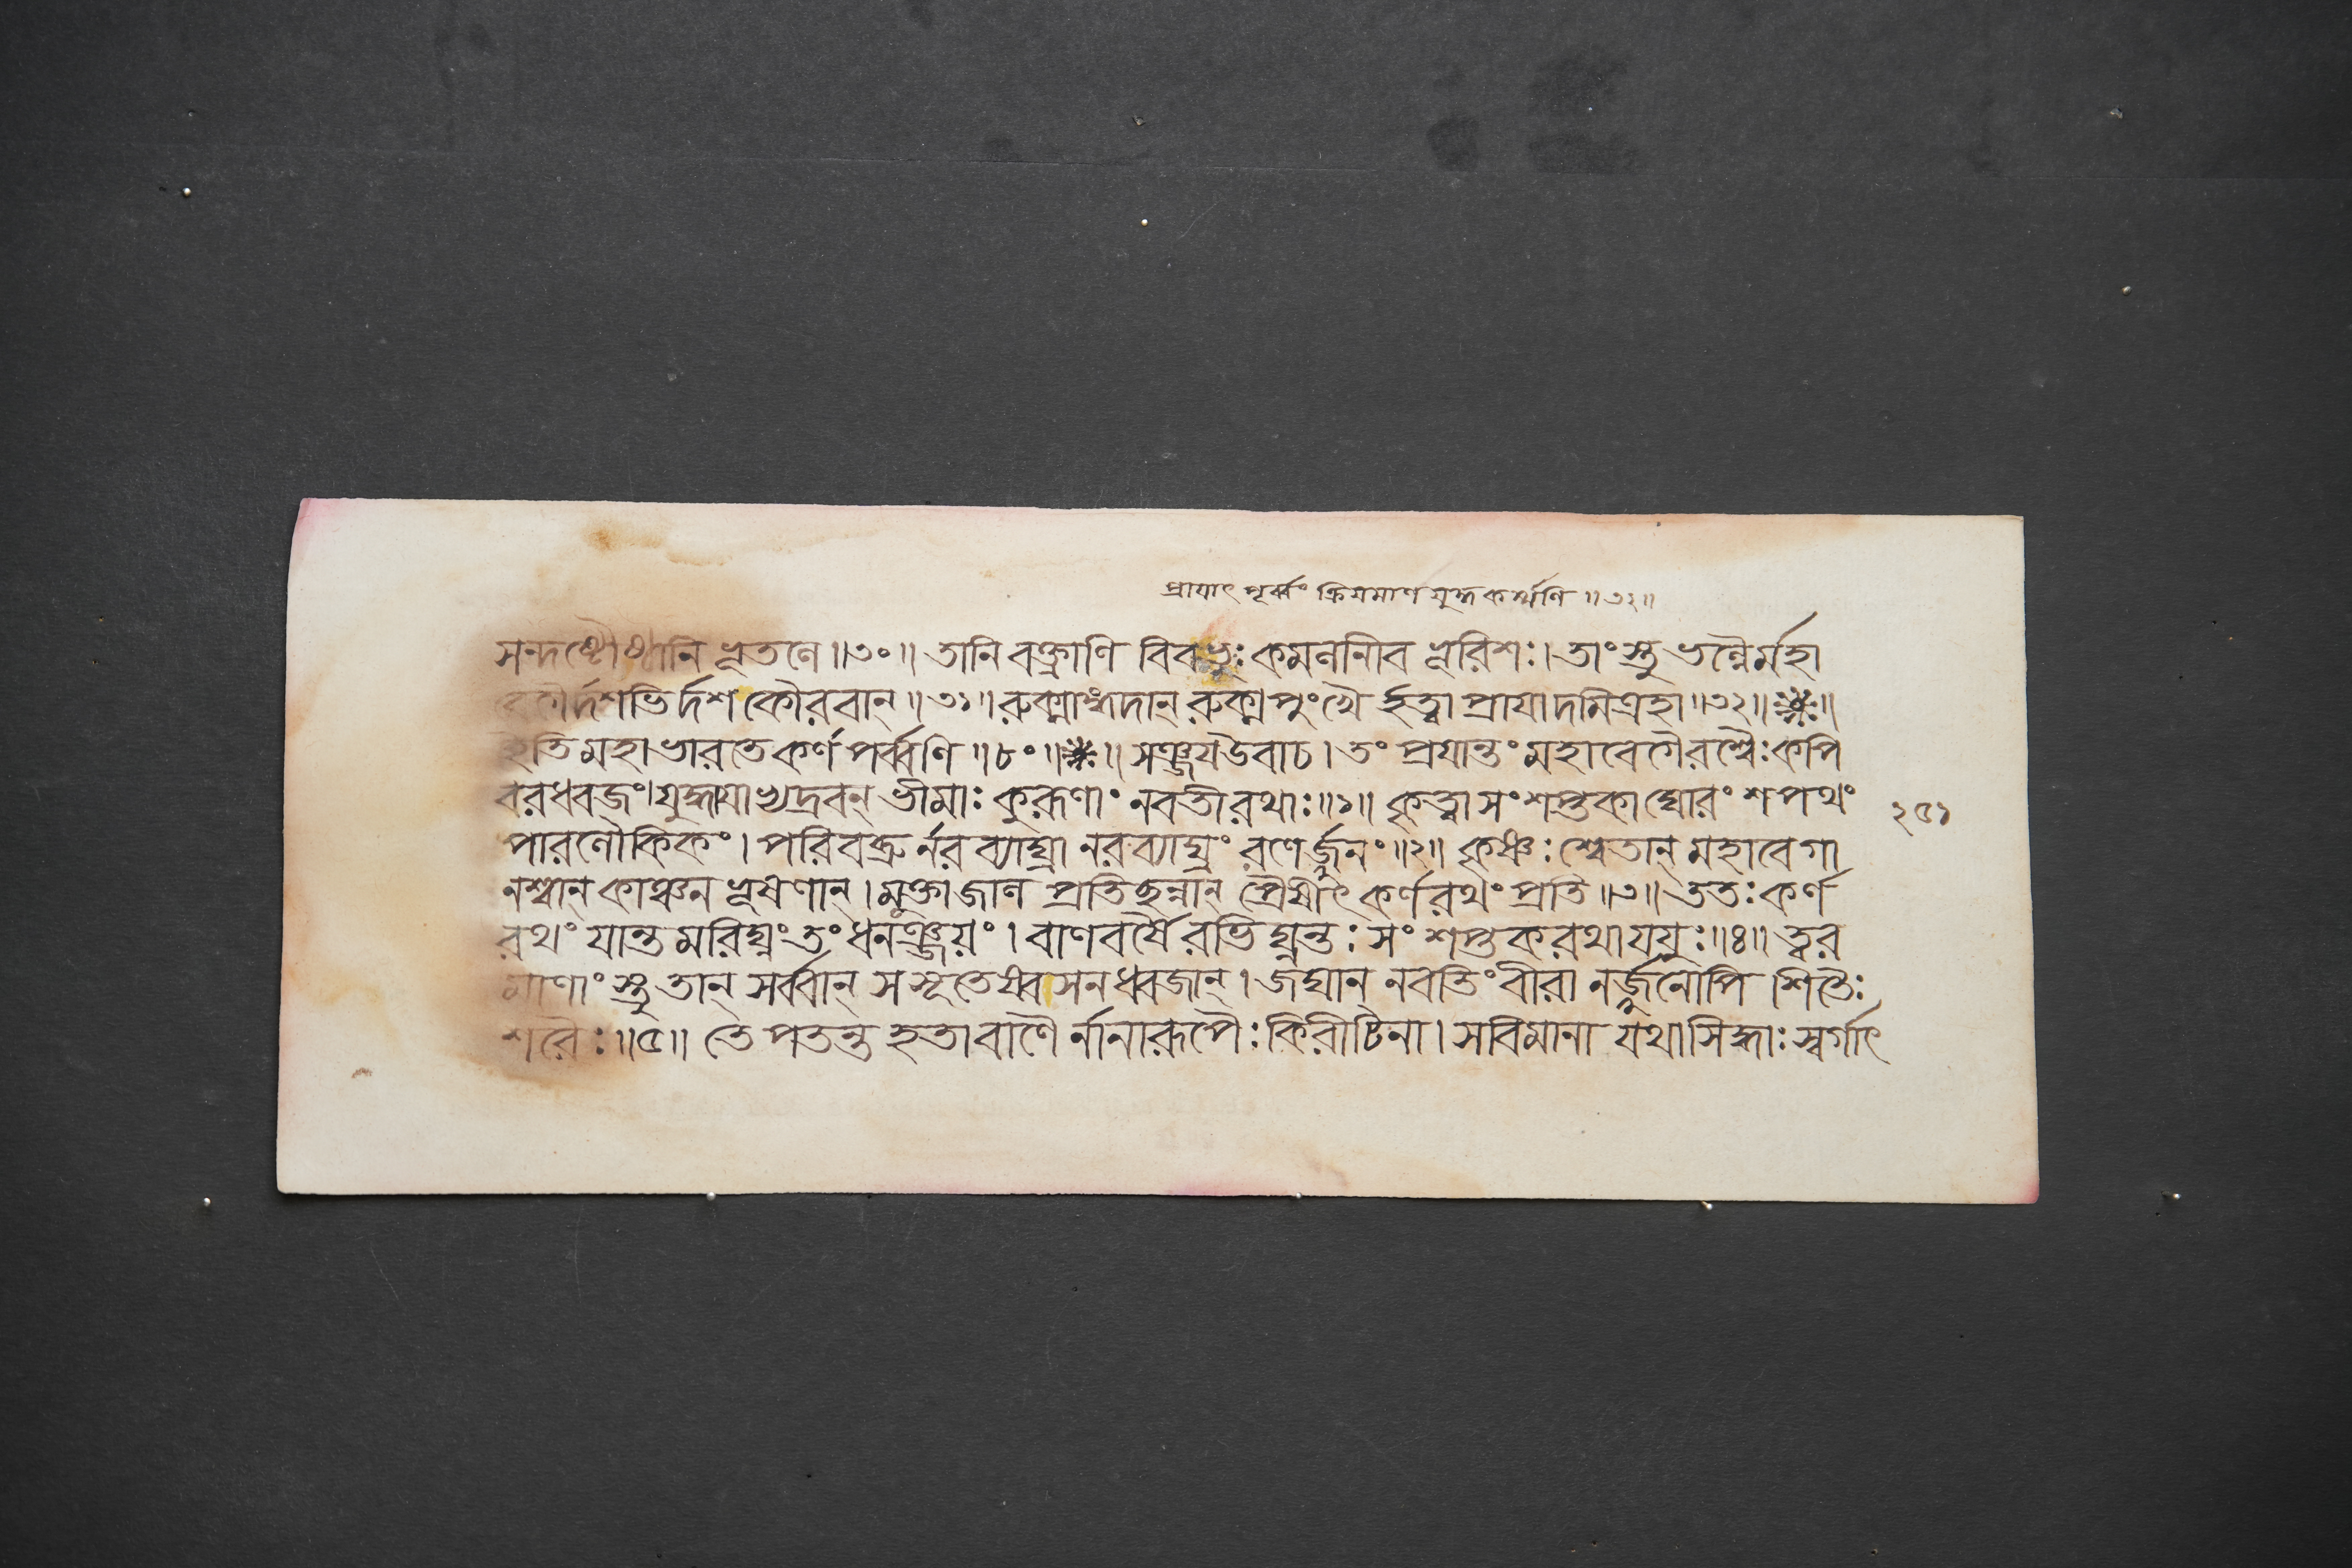 প্রাযাৎ পূর্ব্বং ক্রিযমাণ যুদ্ধকর্ম্মণি ॥৩২॥
সন্দষ্টৌষ্ঠানি ভূতলে ॥৩০॥ তানি বক্ত্রাণি বিবভুঃ কমলানীব ভূরিশঃ। তাংস্তু ভল্লৈর্মহা
বেগৈর্দশভির্দশ কৌরবান্ ॥৩১॥ রুক্মাঙ্গদান্ রুক্মপুংখৈ র্হত্বা প্রাযাদমিত্রহা ॥৩২॥ ❋ ॥
ইতি মহাভারতে কর্ণপর্ব্বণি ॥৮০॥ ❋ ॥ সঞ্জযউবাচ। তং প্রযান্তং মহাবেগৈরশ্বৈঃ কপি
বরধ্বজং। যুদ্ধাযাভ্যদ্রবন্ ভীমাঃ কুরূণাং নবতীরথাঃ ॥১॥ কৃত্বা সংশপ্তকা ঘোরং শপথং
পারলৌকিকং। পরিবব্রু র্নরব্যাঘ্রা নরব্যাঘ্রং রণের্জ্জুনং ॥২॥ কৃষ্ণঃ শ্বেতান্ মহাবেগা
নশ্বান্ কাঞ্চন ভূষণান্। মুক্তাজাল প্রতিছন্নান্ প্রৈষীৎ কর্ণরথং প্রতি ॥৩॥ ততঃ কর্ণ
রথং যান্ত মরিঘ্নং তং ধনঞ্জয়ং। বাণবর্ষৈ রভিঘ্নন্তঃ সংশপ্তকরথা যযুঃ ॥৪॥ ত্বর
মাণাংস্তু তান্ সর্ব্বান্ সসূতেষ্বসনধ্বজান্। জঘান্ নবতিং বীরা নর্জ্জুনোপি শিতৈঃ
শরৈঃ ॥৫॥ তে পতন্ত হতা বাণৈ র্নানারূপৈঃ কিরীটিনা। সবিমানা যথা সিদ্ধাঃ স্বর্গাৎ
২৫১